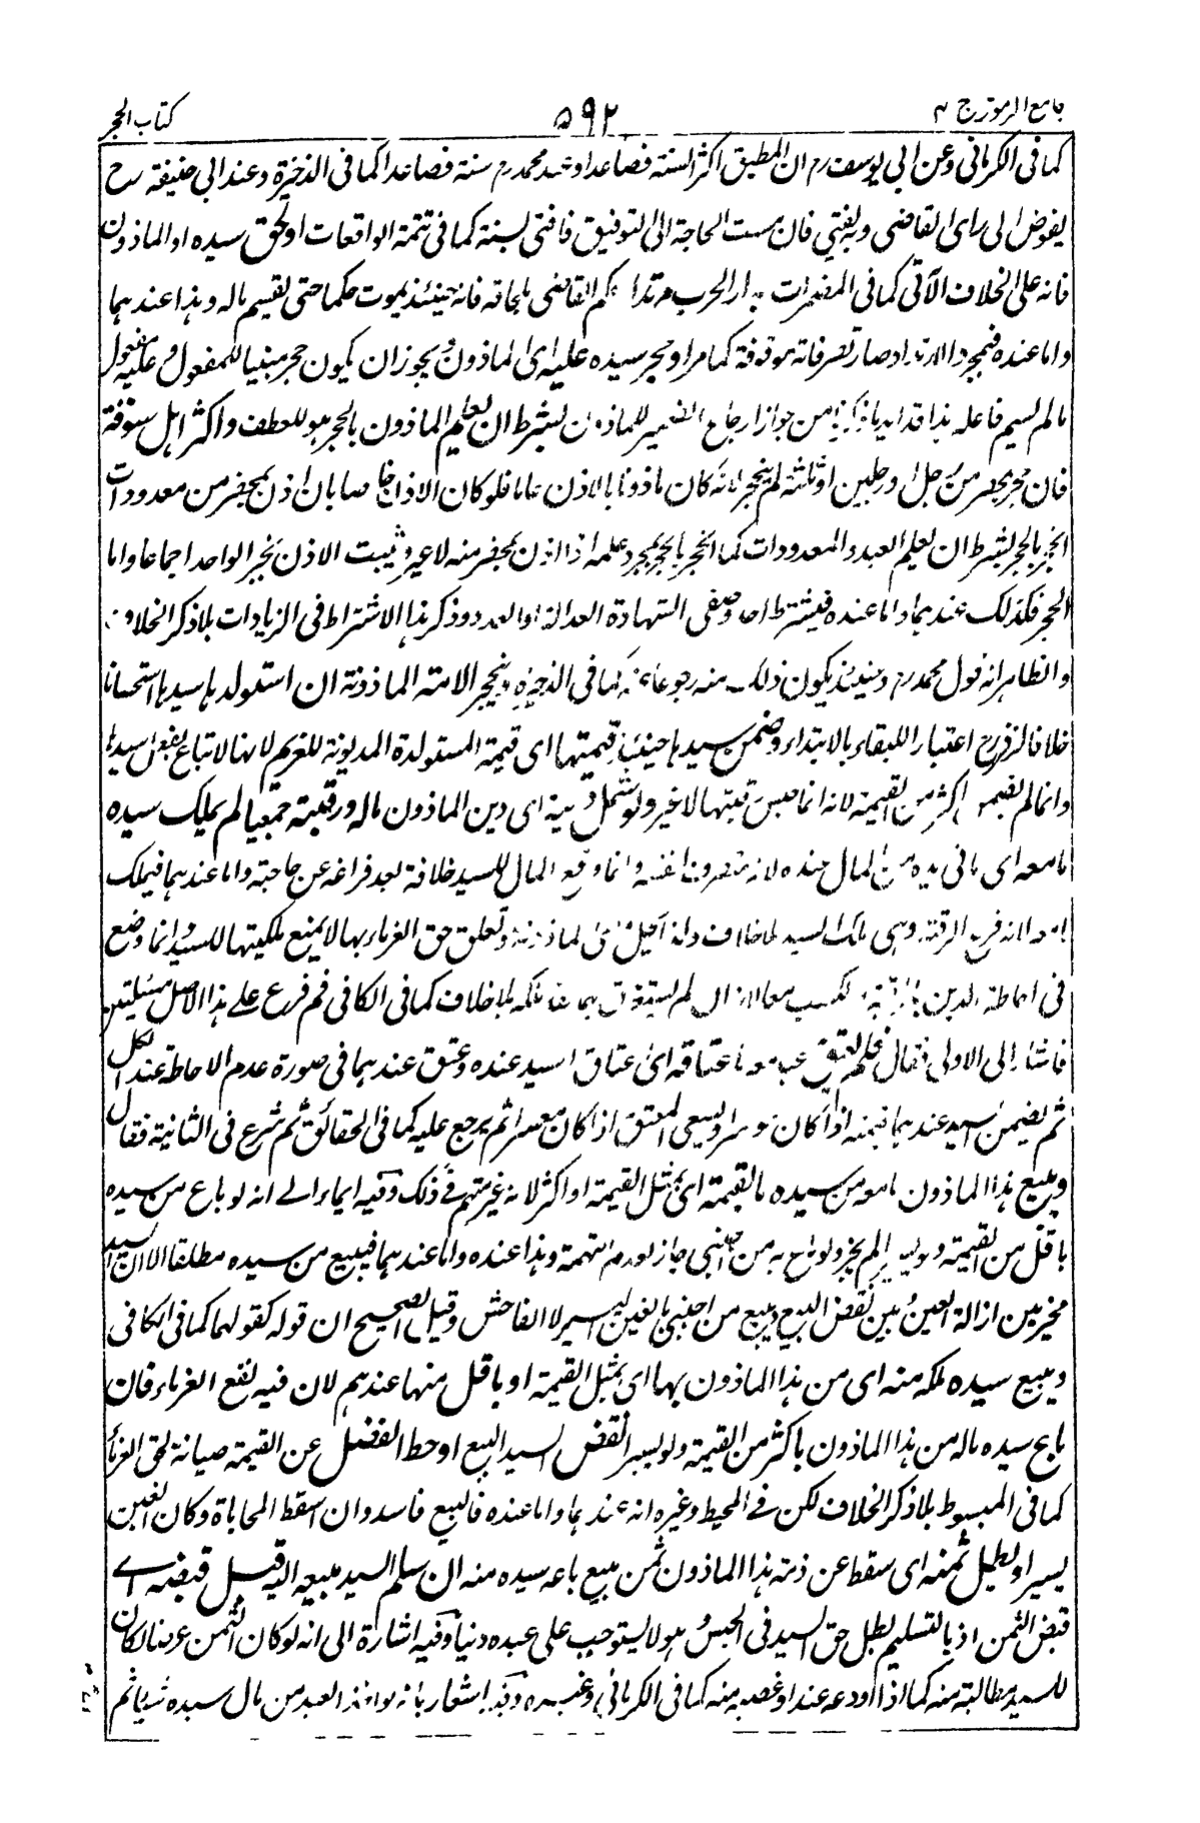 جامع الرموز ج ۲ ۵۹۲ كتاب الحجر
كما فى الكرمانى وعن ابى يوسف رح ان المطبق اكثر السنة فصاعدا وعند محمد رح سنة فصاعدا كما فى الذخيرة وعند ابى حنيفة رح
يفوض الى راى القاضى وبه يفتى فان مست الحاجة الى التوفيق فافتى بسنة كما فى تتمة الواقعات او لحق سيده او الماذون
فانه على الخلاف الآتى كما فى المضمرات بدار الحرب مرتدا القاضى بلحاقه فانه حينئذ يموت حكما حتى يقسم ماله وهذا عندهما
واما عنده فبمجرد الارتداد صار تصرفاته موقوفة كما مر او حجر سيده عليه اى الماذون ويجوز ان يكون حجر مبنيا للمفعول وعليه مفعول
ما لم يسم فاعله هذا من جواز ارجاع الضمير للماذون بشرط ان يعلم الماذون بالحجر هو للعطف واكثر اهل سوقه
فان حجر بحضر من رجل او رجلين او ثلثة لم ينحجر لانه كان ماذونا بالاذن عاما فلو كان الاذن خاصا بان اذن بمحضر من معدودات
انحجر بالحجر بشرط ان يعلم العبد والمعدودات كما انحجر بالحجر بمجرد علمه اذا اذن بمحضر منه لا غير ويثبت الاذن بخبر الواحد اجماعا واما
الحجر فكذلك عندهما واما عنده فيشترط احد وصفى الشهادة العدالة او العدد وذكر هذا الاشتراط فى الزيادات بلا ذكر الخلاف
والظاهر انه قول محمد رح وحينئذ يكون ذلك منه رجوعا كما فى الذخيرة وينحجر الامة الماذونة ان استولدها سيدها استحسانا
خلافا لزفر رح اعتبارا للبقاء بالابتداء وضمن سيدها حينئذ قيمتها اى قيمة المستولدة المديونة للغريم لانها لا تباع بفعل سيدها
وانما لم يضمن اكثر من القيمة لانه انما حبس قيمتها لا غير ولو شمل دينه اى دين الماذون ماله ورقبته جميعا لم يملك سيده
ما معه اى ما فى يده من المال عنده لانه وانما وقع المال للسيد خلافة بعد فراغه عن حاجته واما عندهما فيملك
الرقبة وهى ملك السيد بلا خلاف وتعلق حق الغرماء بها لا يمنع ملكيتها للسيد وانما وضع
فى احاطة الدين لم يستغرق بهما فانه يملكه بلا خلاف كما فى الكافى ثم فرع على هذا الاصل مسئلتين
فاشار الى الاولى فقال فلم يعتق عبد معه باعتاقه اى اعتاق السيد عنده وعتق عندهما فى صورة عدم الاحاطة عند الكل
ثم يضمن السيد عندهما قيمته اذا كان موسرا ويسعى المعتق اذا كان معسرا ثم يرجع عليه كما فى الحقائق ثم شرع فى الثانية فقال
ويبيع هذا الماذون ما معه من سيده بالقيمة اى بمثل القيمة او اكثر لانه غير متهم فى ذلك وفيه ايماء الى انه لو باع من سيده
باقل من القيمة ولو بيسير لم يجز ولو باع به من اجنبى جاز لعدم التهمة وهذا عنده واما عندهما فيبيع من سيده مطلقا الا ان السيد
مخير بين ازالة الغبن وبين نقض البيع ويبيع من اجنبى بالغبن اليسير لا الفاحش وقيل الصحيح ان قوله كقولهما كما فى الكافى
ويبيع سيده ملكه منه اى من هذا الماذون بها اى بمثل القيمة او باقل منها عندهم لان فيه نفع الغرماء فان
باع سيده ماله من هذا الماذون باكثر من القيمة ولو بيسير نقض السيد البيع او حط الفضل عن القيمة صيانة لحق الغرماء
كما فى المبسوط بلا ذكر الخلاف لكن فى المحيط وغيره انه عندهما واما عنده فالبيع فاسد وان اسقط المحاباة وكان الغبن
يسيرا وبطل ثمنه اى سقط عن ذمة هذا الماذون ثمن مبيع باعه سيده منه ان سلم السيد مبيعه اليه قبل قبضه اى
قبض الثمن اذ بالتسليم بطل حق السيد فى الحبس وهو لا يستوجب على عبده دينا وفيه اشارة الى انه لو كان الثمن عرضا لكان
للسيد مطالبته منه كما اذا اودعه عنده او غصبه منه كما فى الكرمانى وغيره وفيه اشعار بانه لو اخذ العبد من مال سيده شيئا ثم